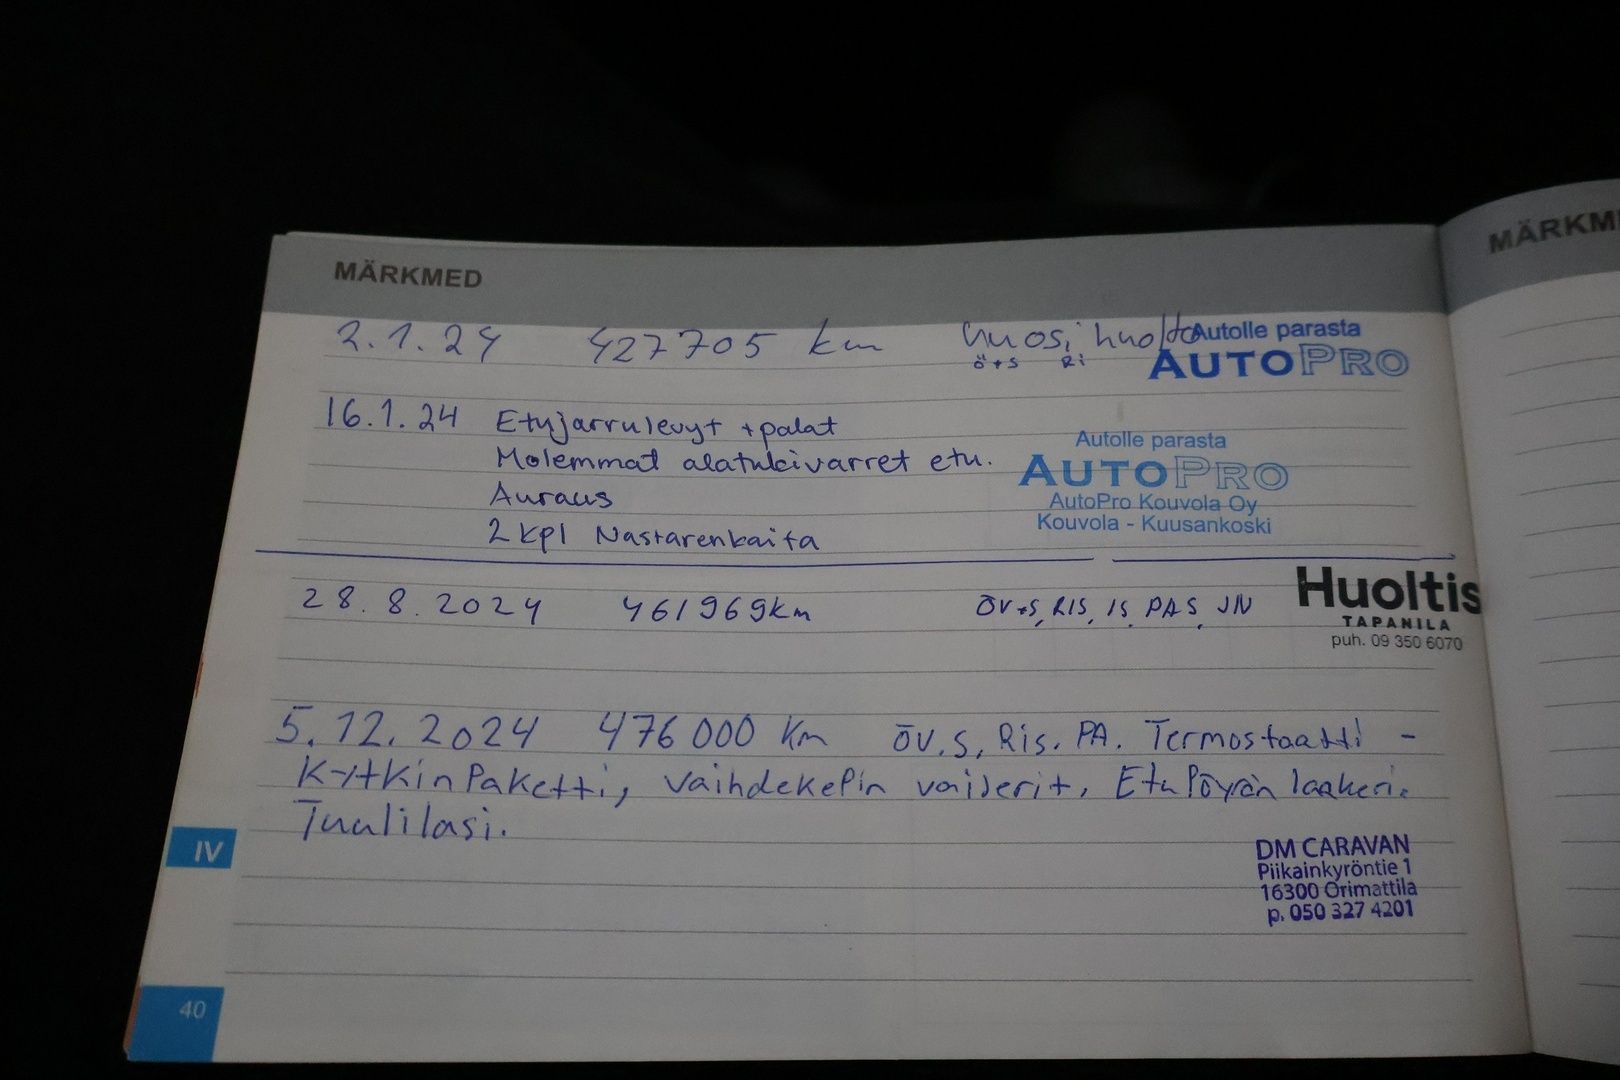 MÄRKMED
MÄRKM
2.1.24 427705 km vuosihuolto
ö+s Ri
Autolle parasta
AUTOPRO
16.1.24 Etujarrulevyt + palat
Molemmat alatukivarret etu.
Auraus
2 kpl Nastarenkaita
Autolle parasta
AUTOPRO
AutoPro Kouvola Oy
Kouvola - Kuusankoski
28.8.2024 461969km ÖV+S, RIS, IS, PAS, JN
Huoltis
TAPANILA
puh. 09 350 6070
5.12.2024 476000 km ÖV.S, Ris. PA. Termostaatti -
Kytkinpaketti, vaihdekepin vaijerit, Etupöyrän laakeri.
Tuulilasi.
DM CARAVAN
Piikainkyröntie 1
16300 Orimattila
p. 050 327 4201
IV
40